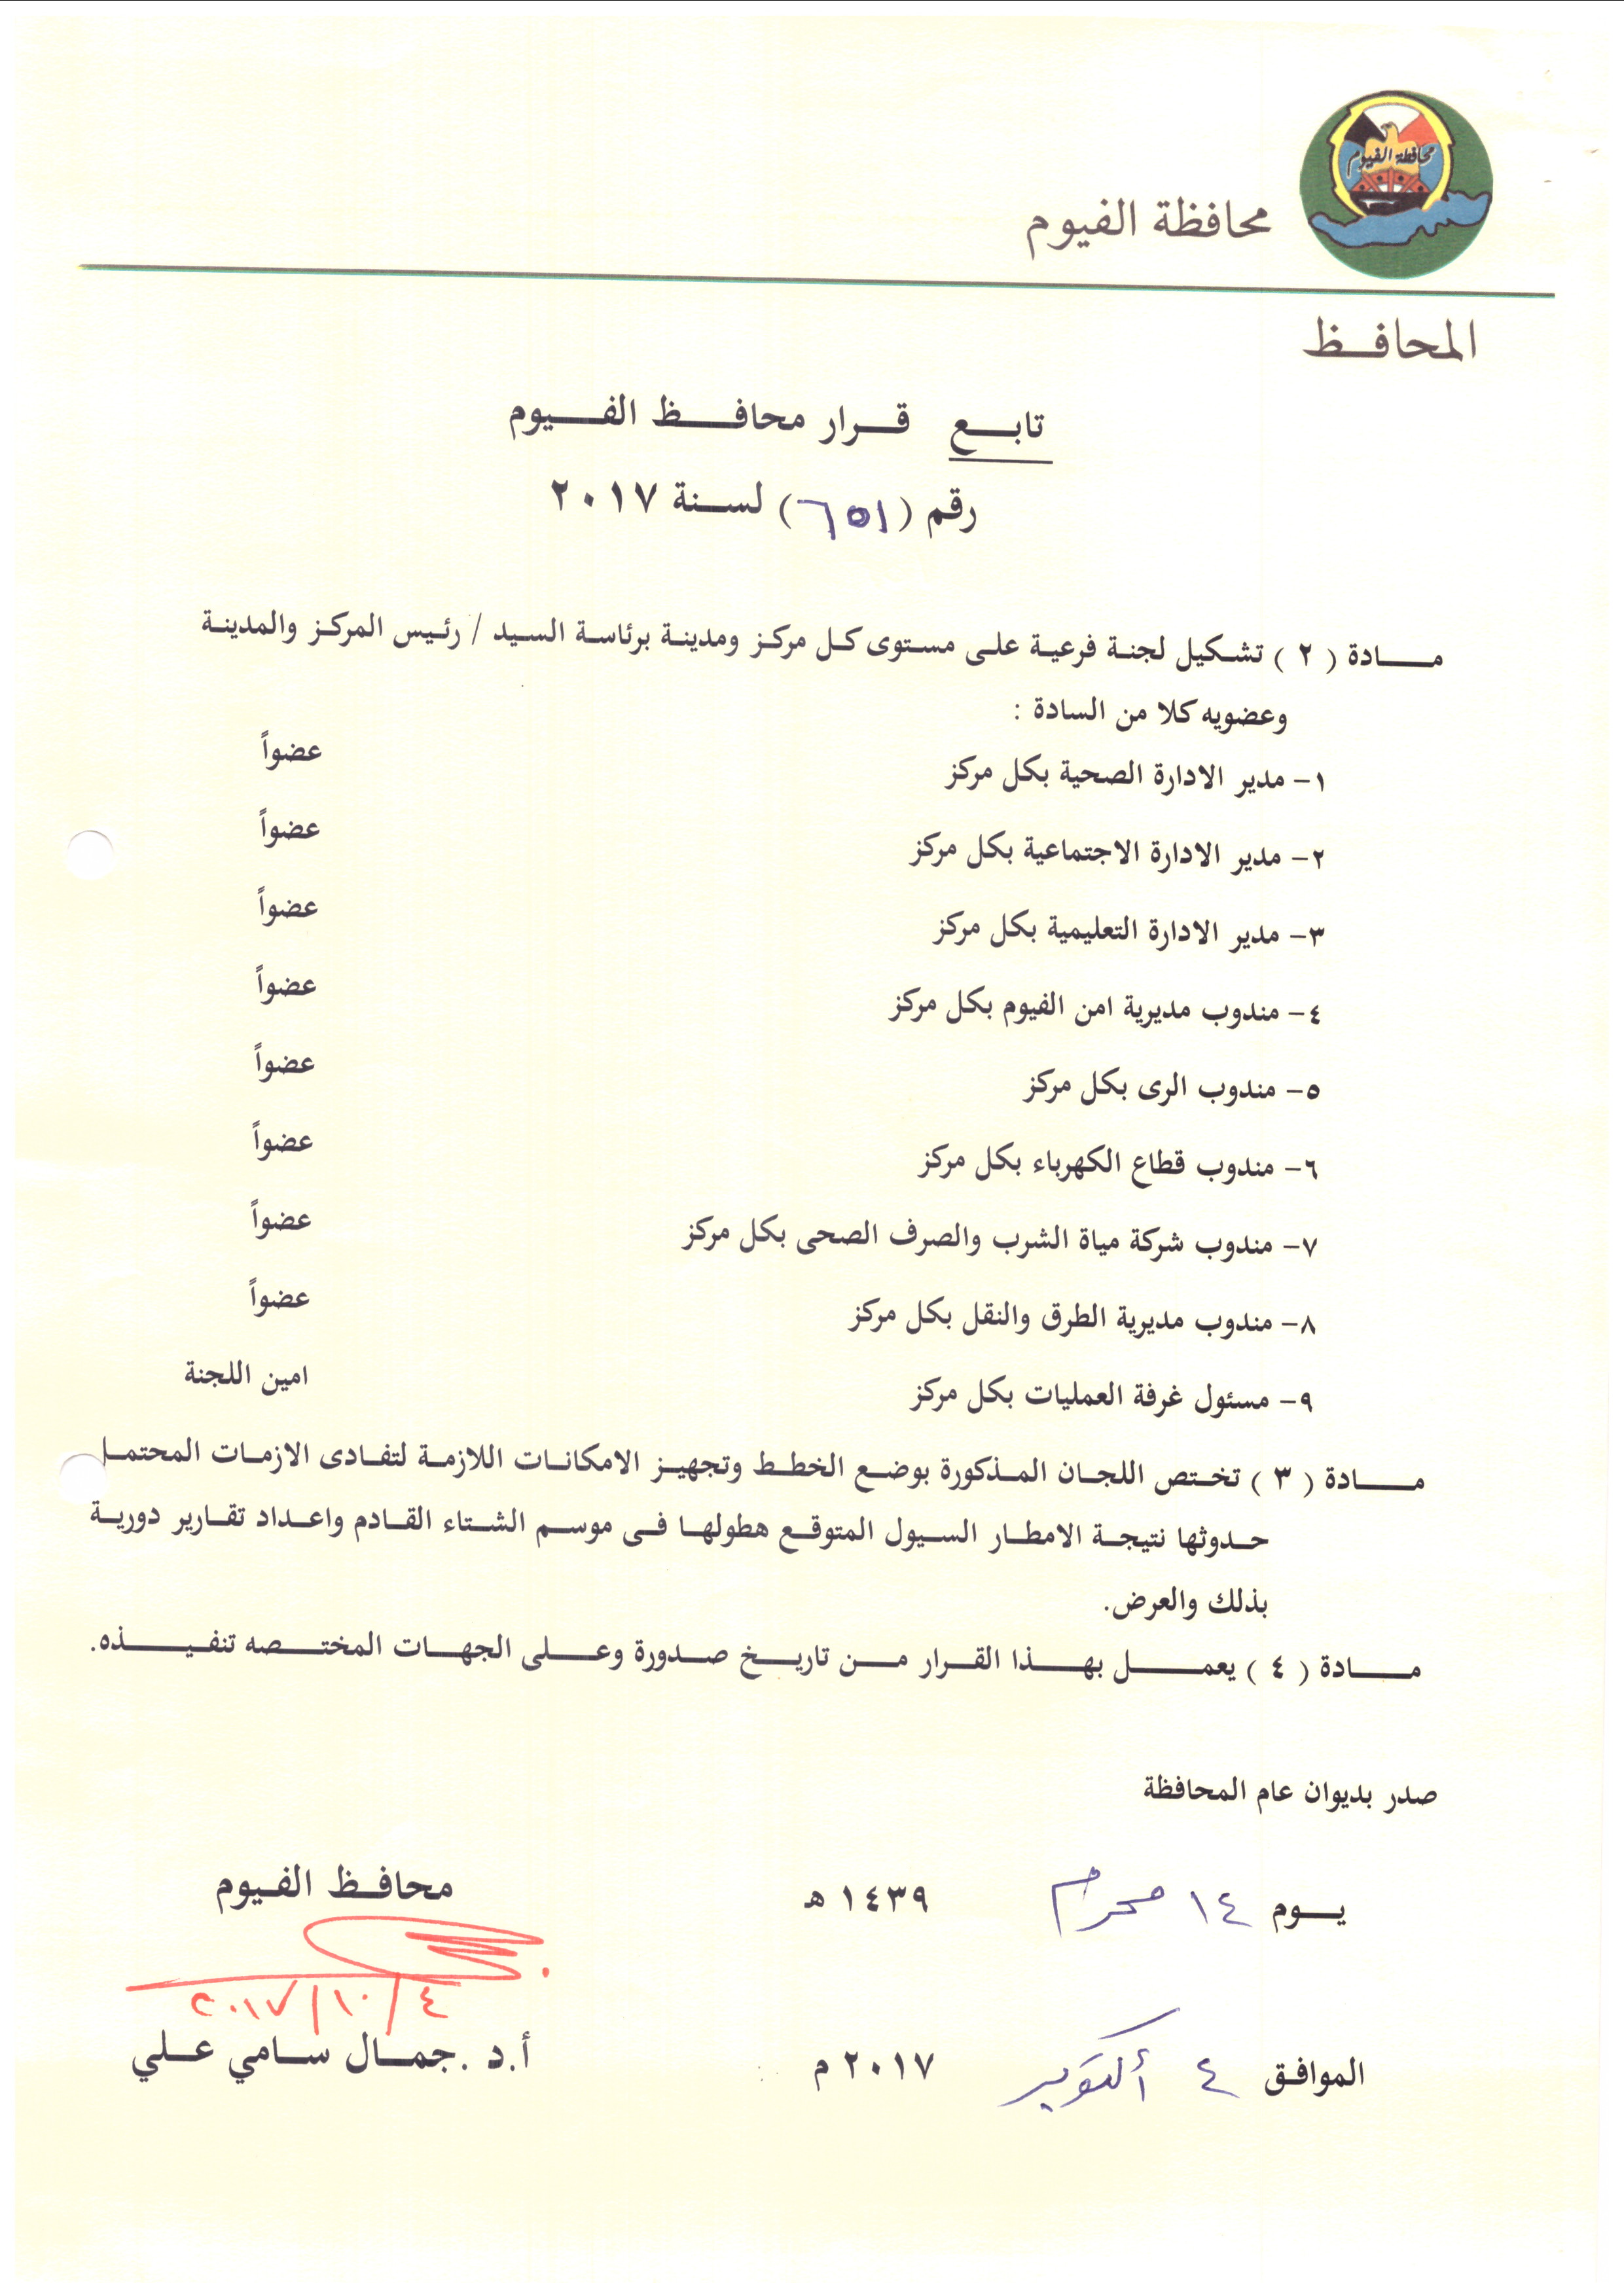 محافظة الفيوم
محافظة الفيوم
المحافظ
تابع قرار محافظ الفيوم
رقم (٦٥١) لسنة ٢٠١٧
مادة ( ٢ ) تشكيل لجنة فرعية على مستوى كل مركز ومدينة برئاسة السيد / رئيس المركز والمدينة
وعضويه كلا من السادة :
١- مدير الادارة الصحية بكل مركز عضواً
٢- مدير الادارة الاجتماعية بكل مركز عضواً
٣- مدير الادارة التعليمية بكل مركز عضواً
٤- مندوب مديرية امن الفيوم بكل مركز عضواً
٥- مندوب الرى بكل مركز عضواً
٦- مندوب قطاع الكهرباء بكل مركز عضواً
٧- مندوب شركة مياة الشرب والصرف الصحى بكل مركز عضواً
٨- مندوب مديرية الطرق والنقل بكل مركز عضواً
٩- مسئول غرفة العمليات بكل مركز امين اللجنة
مادة ( ٣ ) تختص اللجان المذكورة بوضع الخطط وتجهيز الامكانات اللازمة لتفادى الازمات المحتمل
حدوثها نتيجة الامطار السيول المتوقع هطولها فى موسم الشتاء القادم واعداد تقارير دورية
بذلك والعرض.
مادة ( ٤ ) يعمل بهذا القرار من تاريخ صدورة وعلى الجهات المختصه تنفيذه.
صدر بديوان عام المحافظة
يوم ١٤ محرم ١٤٣٩ هـ
الموافق ٤ أكتوبر ٢٠١٧ م
محافظ الفيوم
٤/١٠/٢٠١٧
أ.د .جمال سامي علي